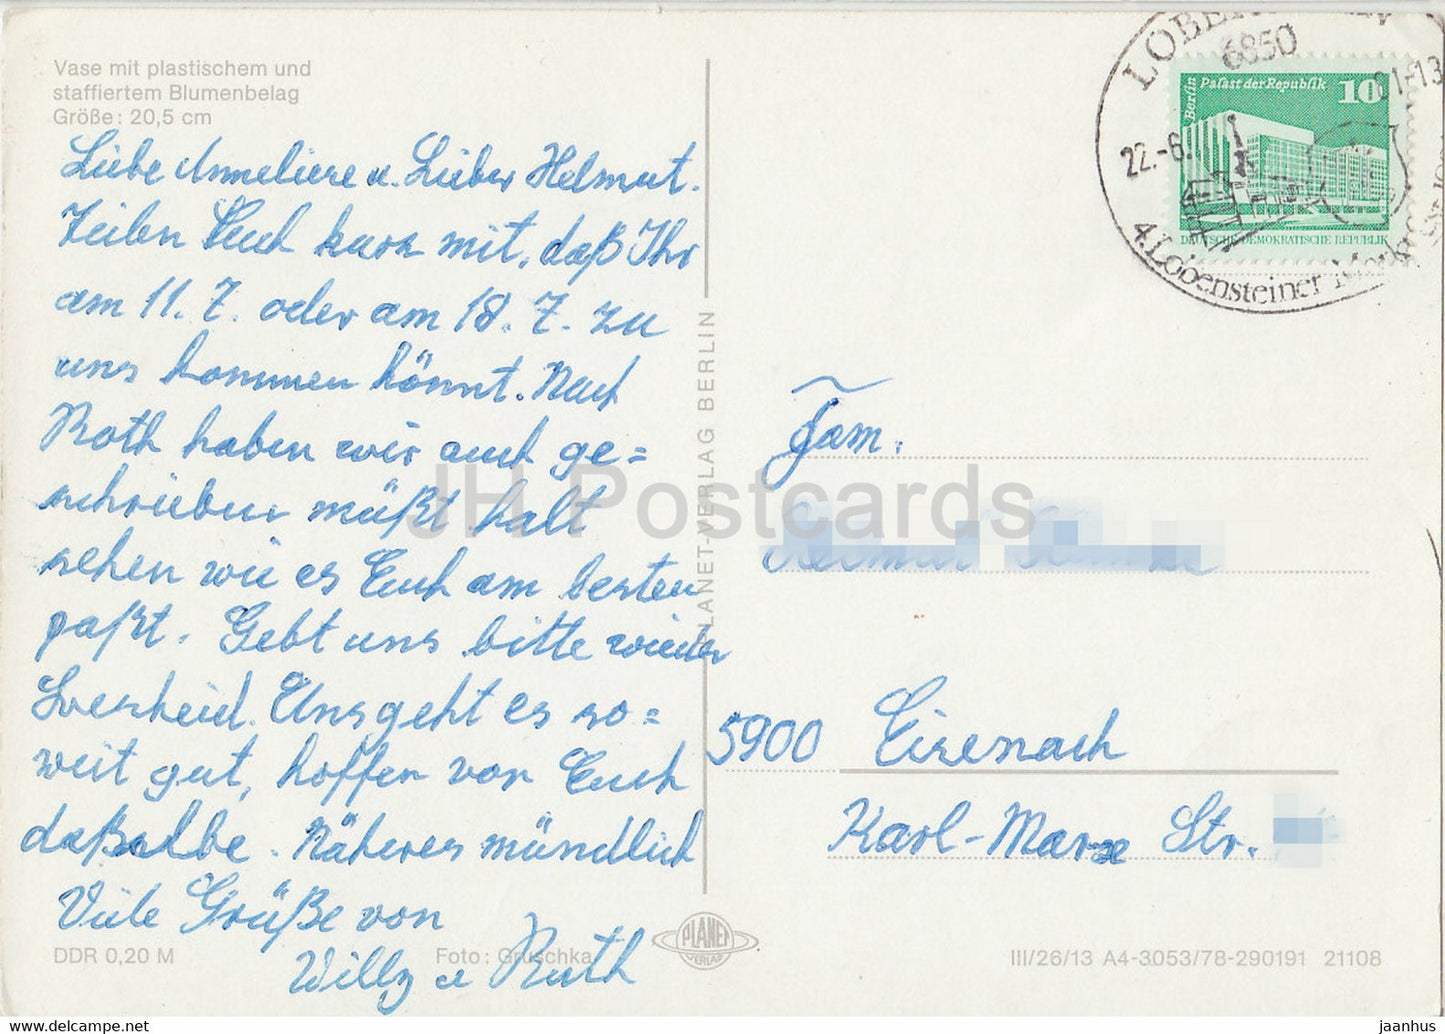 Vase mit plastischem und
staffiertem Blumenbelag
Größe: 20,5 cm
Liebe Anneliese u. Lieber Helmut.
Teilen Euch kurz mit, daß Ihr
am 11. 7. oder am 18. 7. zu
uns kommen könnt. Nach
Roth haben wir auch ge=
schrieben müßt halt
sehen wie es Euch am besten
paßt. Gebt uns bitte wieder
bescheid. Uns geht es so=
weit gut, hoffen von Euch
daßselbe. Näheres mündlich
Viele Grüße von
Willy u Ruth
DDR 0,20 M
Foto: Gruschka
PLANET-VERLAG BERLIN
PLANET
VERLAG
6850
22.-6.
-13
4. Lobensteiner Markt
Berlin Palast der Republik 10
DEUTSCHE DEMOKRATISCHE REPUBLIK
Fam.
Helmut
5900 Eisenach
Karl-Marx Str.
III/26/13 A4-3053/78-290191 21108
JH Postcards
https://www.jaanhus.com
jaanhus